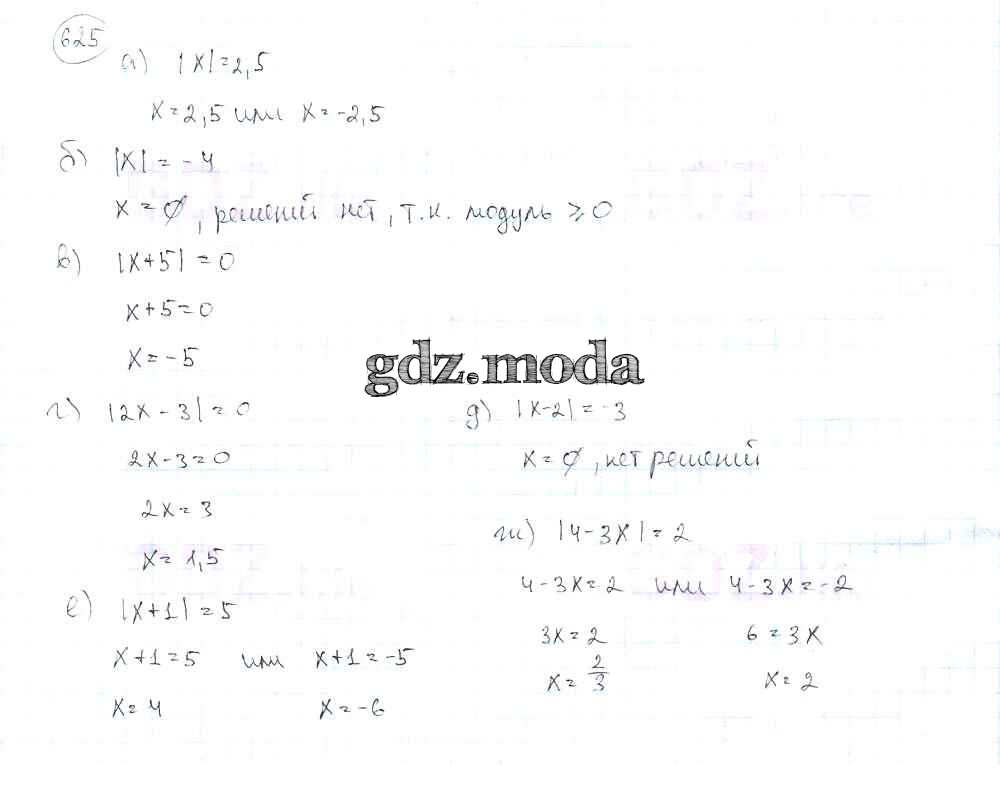 625
а) |x|=2,5
x=2,5 или x=-2,5
б) |x|=-4
x=∅, решений нет, т.к. модуль ⩾0
в) |x+5|=0
x+5=0
x=-5
gdz.moda
г) |2x-3|=0
2x-3=0
2x=3
x=1,5
д) |x-2|=-3
x=∅, нет решений
е) |x+1|=5
x+1=5 или x+1=-5
x=4 x=-6
ж) |4-3x|=2
4-3x=2 или 4-3x=-2
3x=2 6=3x
x=2/3 x=2